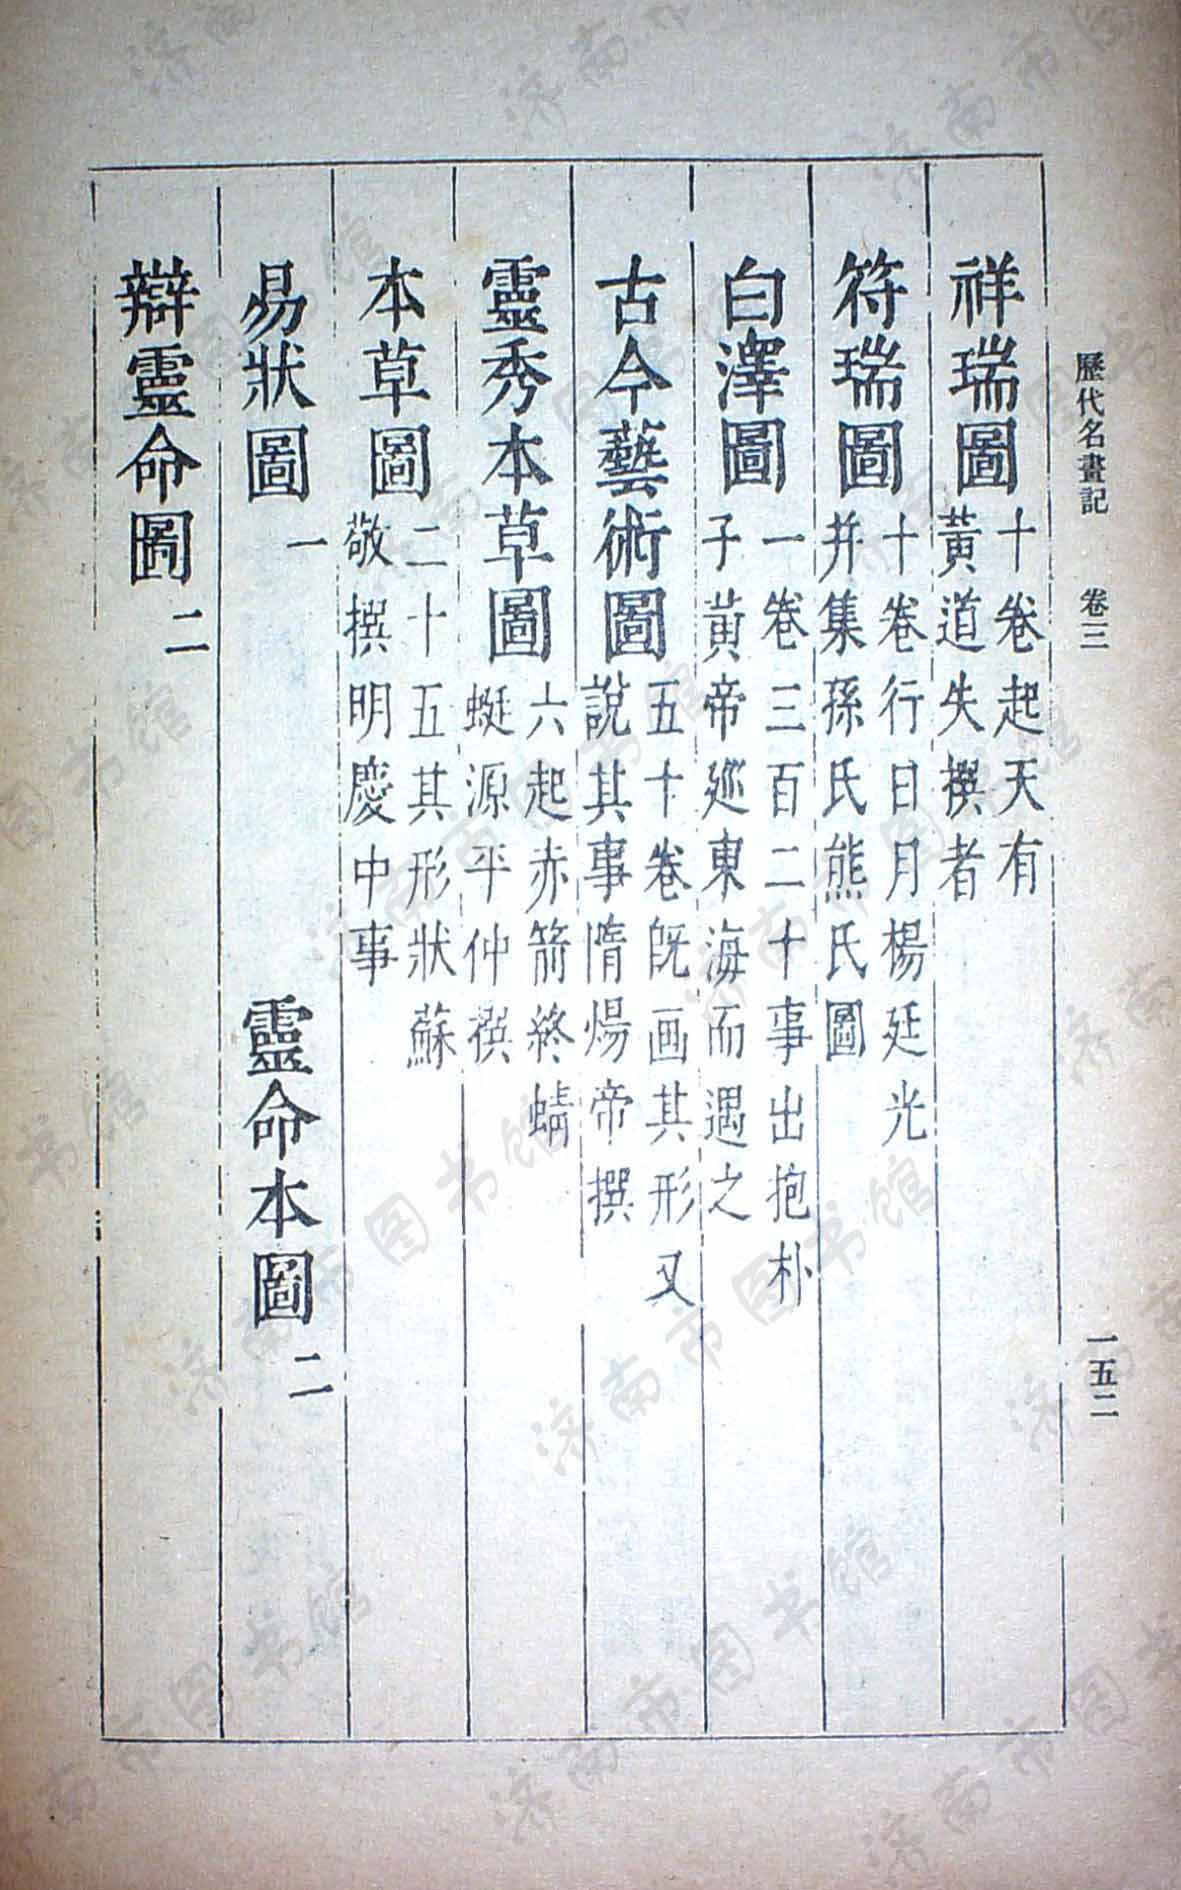 歷代名畫記 卷三 一五二
祥瑞圖 十卷起天有黃道失撰者
符瑞圖 十卷行日月楊廷光并集孫氏熊氏圖
白澤圖 一卷三百二十事出抱朴子黃帝巡東海而遇之
古今藝術圖 五十卷旣画其形又說其事隋煬帝撰
靈秀本草圖 六起赤箭終蜻蜓源平仲撰
本草圖 二十五其形狀蘇敬撰明慶中事
易狀圖 一 靈命本圖 二
辯靈命圖 二
济南市图书馆